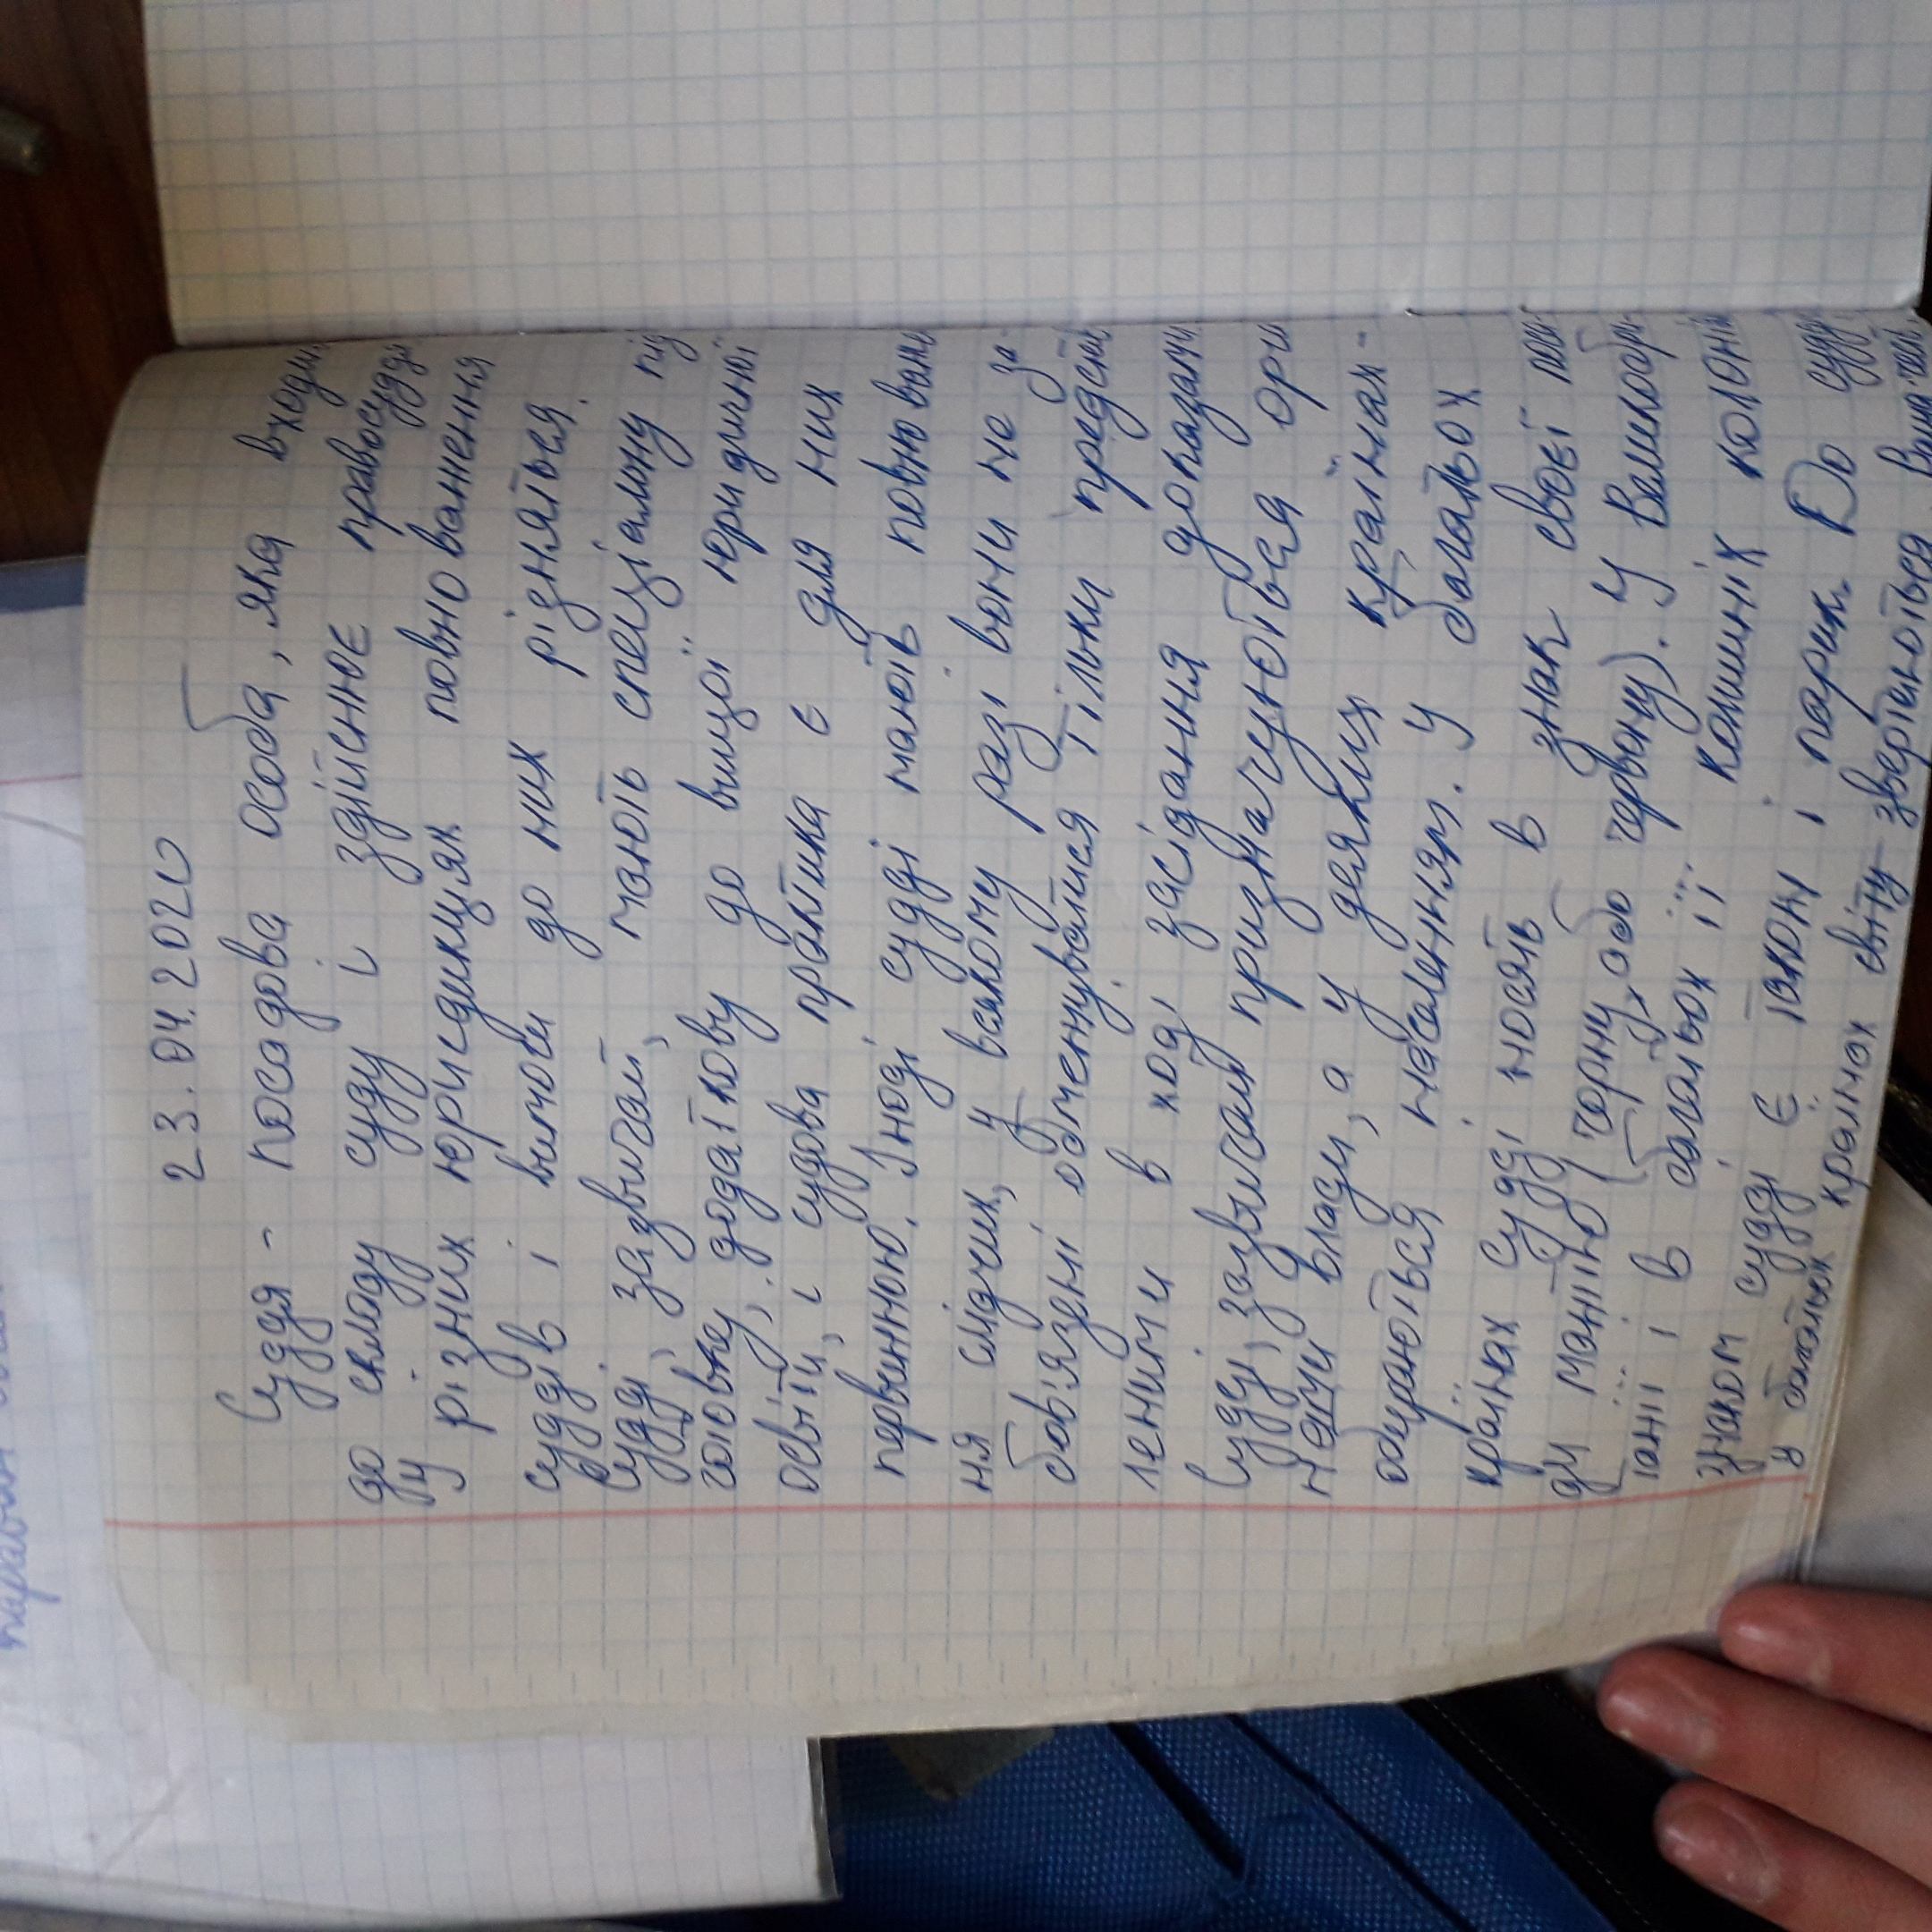 23.04.2020
Суддя - посадова особа, яка входи
до складу суду і здійснює правосуддя
У різних юрисдикціях повноваження
суддів і вимоги до них різняться.
Судді, зазвичай, мають спеціальну під
готовку, додаткову до вищої юридичної
освіти, і судова практика є для них
первинною. Іноді судді мають повнован
ня слідчих, у всякому разі вони не за-
бов'язані обмежуватися тільки представ
леними в ході засідання доказами
Судді, зазвичай призначуються орга
нами влади, а у деяких країнах -
обираються населенням. У багатьох
країнах судді носять в знак своєї поса
ди мантію (чорну або червону). У Великобри
танії і в багатьох її колишніх колоній
знаком судді є також і парик. До судд
у багатьох країнах світу звертаються